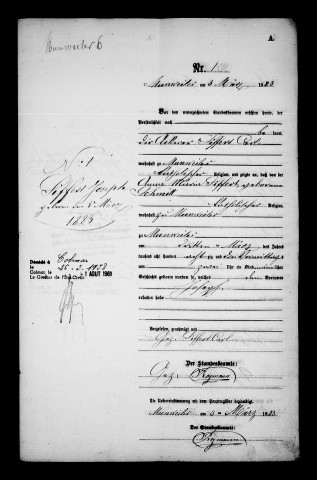 Munweiler 6
A
Nr. 1
Munweiler am 3 März 1883
Vor dem unterzeichneten Standesbeamten erschien heute, der
Persönlichkeit nach
bekannt,
der Ackerer Siffert Carl
wohnhaft zu Munweiler
katholischer Religion, und zeigte an, daß von der
Anna Maria Siffert geborenen
Schmitt
katholischer Religion,
wohnhaft zu Munweiler
zu Munweiler
am dritten März des Jahres
tausend acht hundert acht zig und drei Vormittags
um zwei Uhr ein Kind männlichen
Geschlechts geboren worden sei, welches den Vornamen
Joseph
erhalten habe
N° 1
Siffert Joseph
geboren den 3 März
1883
Décédé à Colmar
le 25.3.1958
Colmar, le 1 AOUT 1961
Le Greffier
Vorgelesen, genehmigt und
Gez. Siffert Carl
Der Standesbeamte:
Gez.
Die Uebereinstimmung mit dem Hauptregister beglaubigt
Munweiler am 3 März 1883
Der Standesbeamte: